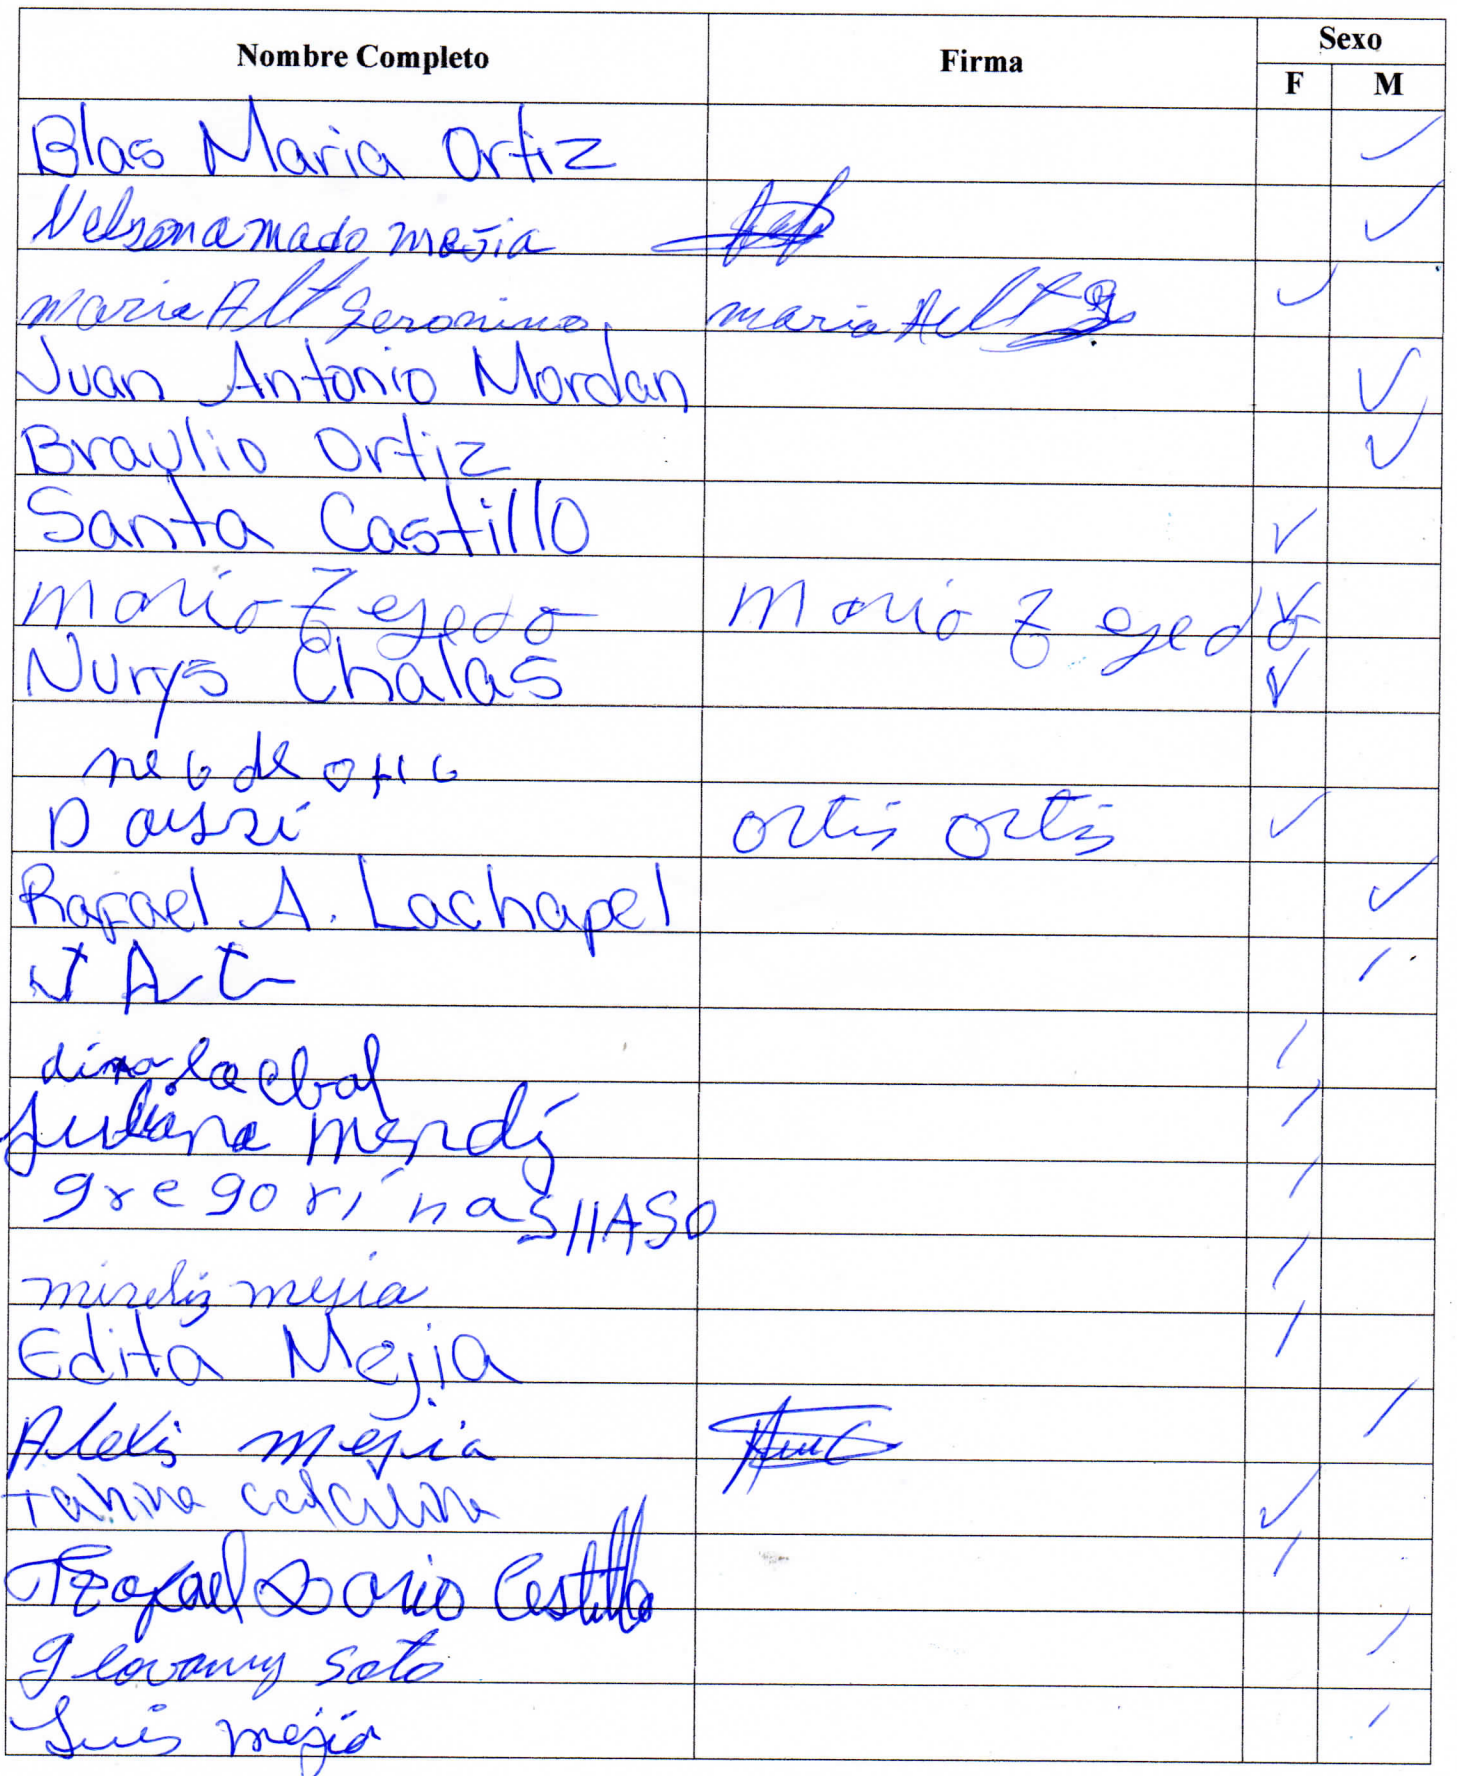 Nombre Completo Firma Sexo
F M
Blas Maria Ortiz ✓
Nelson amado mejia ✓
maria Alt Geronimo maria Alt ✓
Juan Antonio Mordan ✓
Braulio Ortiz ✓
Santa Castillo ✓
Maria Tejeda Maria Tejeda ✓
Nurys Chalas ✓
de
Daysi ortis ortis ✓
Rafael A. Lachapel ✓
J
dima
Juliana mendy
gregorinas
mireliz mejia
Edita Mejia
Alexis mejia
✓
Rafael Dario Castillo
geovanny soto
Luis mejia